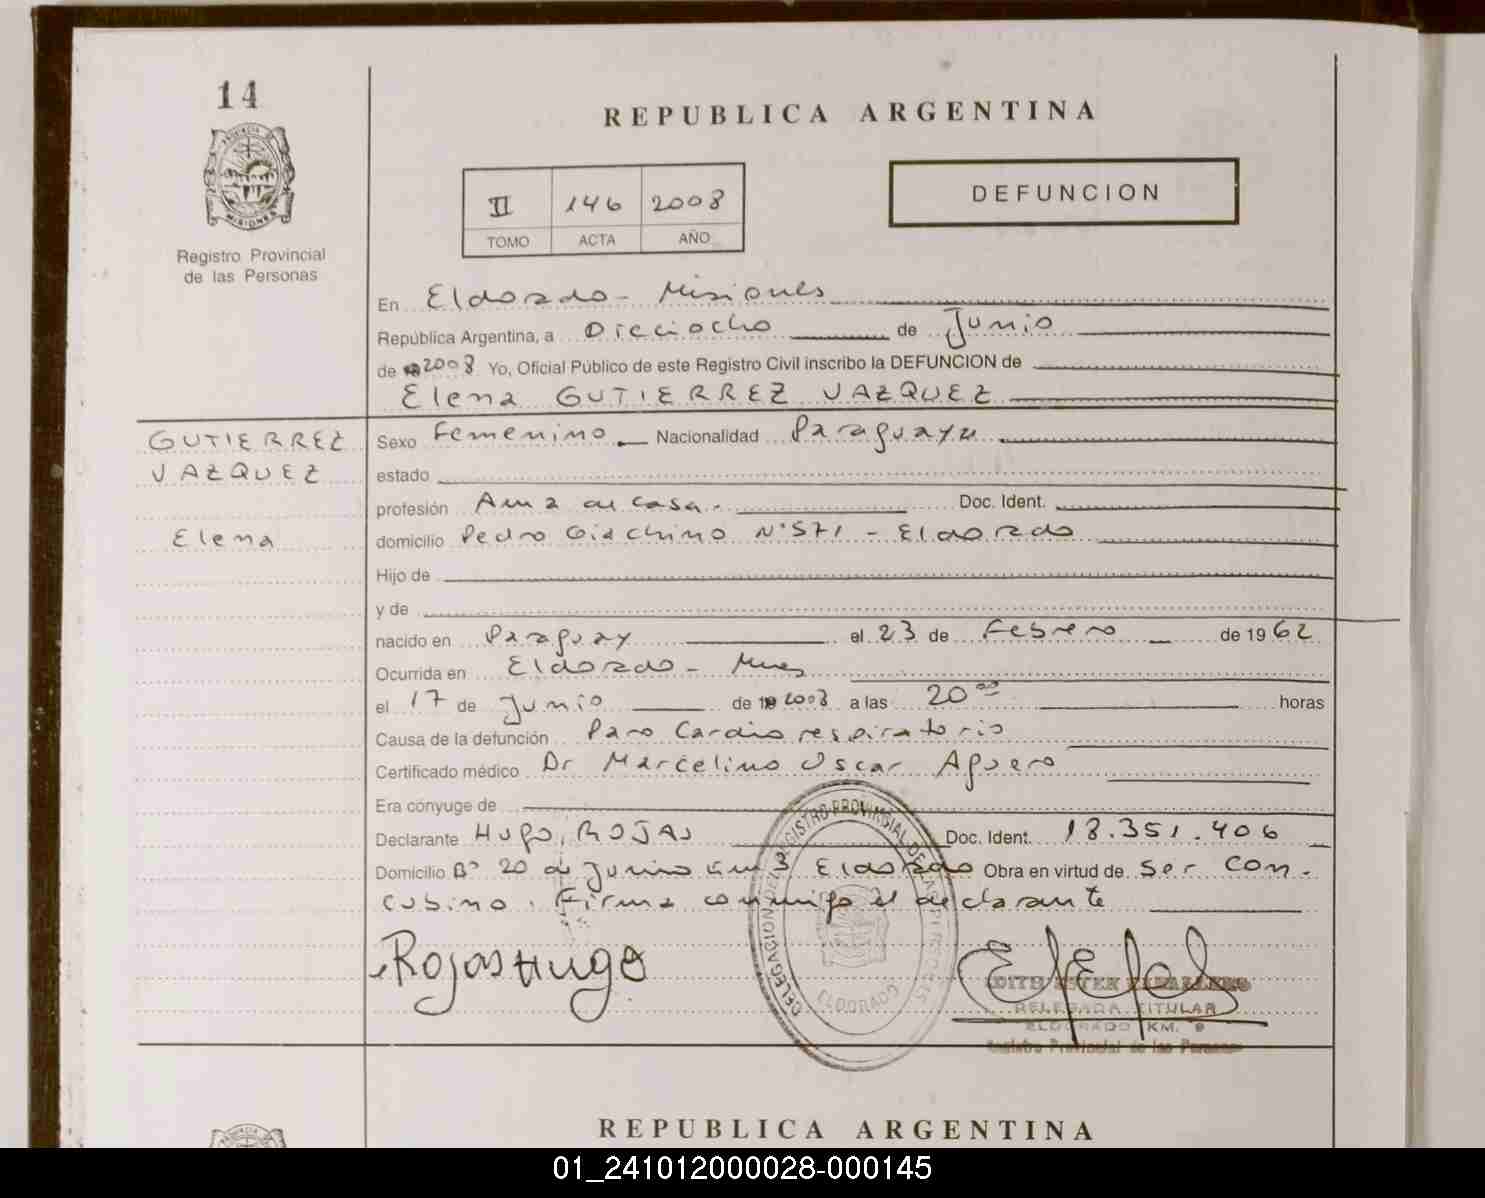 14
REPUBLICA ARGENTINA
PROVINCIA DE
MISIONES
II 146 2008
TOMO ACTA AÑO
DEFUNCION
Registro Provincial
de las Personas
En Eldorado - Misiones
República Argentina, a Dieciocho de Junio
de 2008 Yo, Oficial Público de este Registro Civil inscribo la DEFUNCION de
Elena GUTIERREZ VAZQUEZ
GUTIERREZ
VAZQUEZ
Elena
Sexo Femenino Nacionalidad Paraguaya
estado
profesión Ama de casa. Doc. Ident.
domicilio Pedro Giachino N°571 - Eldorado
Hijo de
y de
nacido en Paraguay el 23 de Febrero de 1962
Ocurrida en Eldorado - Mnes
el 17 de Junio de 19 2008 a las 20 00 horas
Causa de la defunción Paro Cardio respiratorio
Certificado médico Dr Marcelino Oscar Aguero
Era cónyuge de
Declarante Hugo, ROJAS Doc. Ident. 18.351.406
Domicilio B° 20 de Junio km 3 Eldorado Obra en virtud de Ser con-
cubino. Firma conmigo el declarante
Rojas Hugo
DELEGACION DEL REGISTRO PROVINCIAL DE LAS PERSONAS
ELDORADO
EDITH ESTER
DELEGADA TITULAR
ELDORADO KM. 9
Registro Provincial de las Personas
REPUBLICA ARGENTINA
01_241012000028-000145